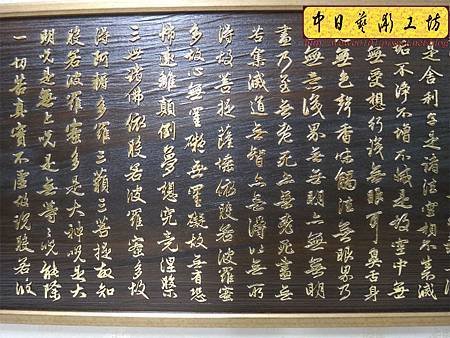 中日藝彫工坊
是舍利子是諸法空相不生滅
垢不淨不增不減是故空中無
無受想行識無眼耳鼻舌身
無色聲香味觸法無眼界乃
無意識界無無明上無無明
盡乃至無老死亦無老死盡無
苦集滅道無智亦無得以無所
得故菩提薩埵依般若波羅蜜
多故心無罣礙無罣礙故無有恐
怖遠離顛倒夢想究竟涅槃
三世諸佛依般若波羅蜜多故
得阿耨多羅三藐三菩提故知
般若波羅蜜多是大神咒是大
明咒是無上咒是無等等咒能除
一切苦真實不虛故說般若波